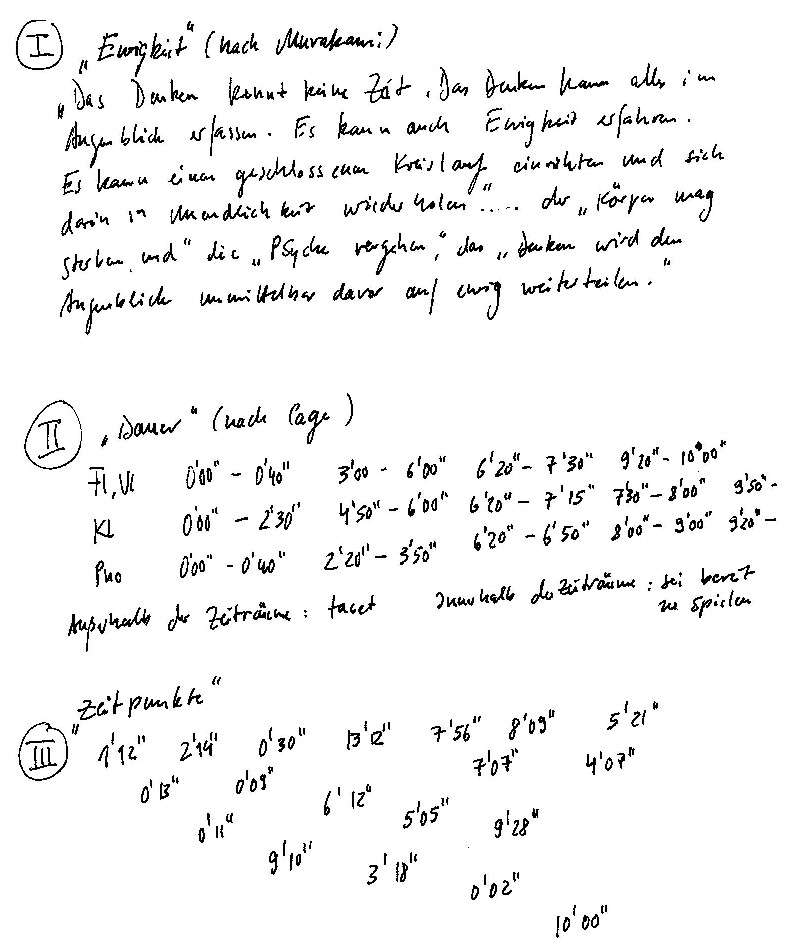 I „Ewigkeit“ (nach Murakami)
„Das Denken kennt keine Zeit. Das Denken kann alles im
Augenblick erfassen. Es kann auch Ewigkeit erfahren.
Es kann einen geschlossenen Kreislauf einrichten und sich
darin in Unendlichkeit wiederholen“..... der „Körper mag
sterben und“ die „Psyche vergehen,“ das „Denken wird den
Augenblick unmittelbar davor auf ewig weiterteilen.“
II „Dauer“ (nach Cage)
Fl, Vl 0'00" - 0'40" 3'00 - 6'00" 6'20" - 7'30" 9'20" - 10'00"
KL 0'00" - 2'30" 4'50" - 6'00" 6'20" - 7'15" 7'30" - 8'00" 9'50" -
Pno 0'00" - 0'40" 2'20" - 3'50" 6'20" - 6'50" 8'00" - 9'00" 9'20" -
Außerhalb der Zeiträume: tacet Innerhalb der Zeiträume: sei bereit
zu spielen
„Zeitpunkte“
III 1'12" 2'14" 0'30" 13'12" 7'56" 8'09" 5'21"
0'13" 0'09" 7'07" 4'07"
0'11" 6'12" 5'05" 9'28"
9'10" 3'18" 0'02"
10'00"